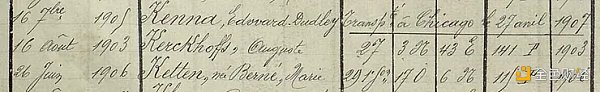 16 7bre 1905 Kenna, Edouard-Dudley Transpté à Chicago le 27 avril 1907
16 Août 1903 Kerckhoffs, August 27 3.N 43 E 141 P 1903
26 Juin 1906 Ketten, née Berné, Marie 29 17 O 6 N 11
金色财经